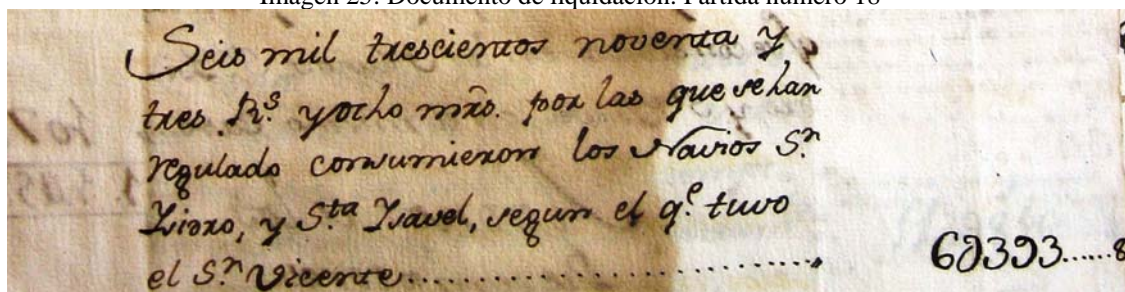 Imagen 25. Documento de liquidación. Partida número 18
Seis mil trescientos noventa y
tres R.s y ocho mrs. por las que se han
regulado consumieron los Navios S.n
Isidro, y S.ta Ysavel, segun el q.e tuvo
el S.n Vicente.................. 6&393......8